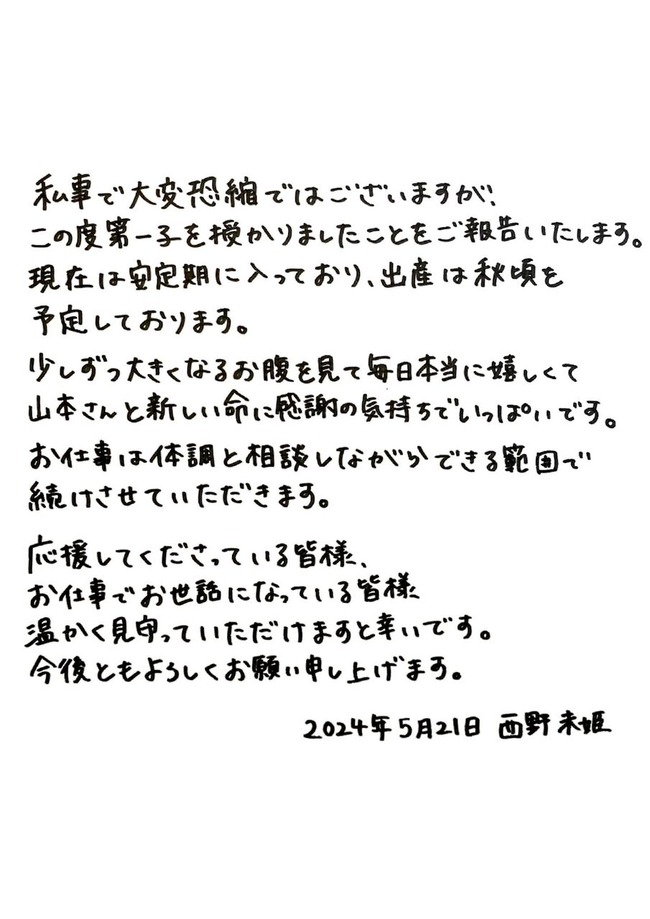 私事で大変恐縮ではございますが、
この度第一子を授かりましたことをご報告いたします。
現在は安定期に入っており、出産は秋頃を
予定しております。
少しずつ大きくなるお腹を見て毎日本当に嬉しくて
山本さんと新しい命に感謝の気持ちでいっぱいです。
お仕事は体調と相談しながらできる範囲で
続けさせていただきます。
応援してくださっている皆様、
お仕事でお世話になっている皆様
温かく見守っていただけますと幸いです。
今後ともよろしくお願い申し上げます。
2024年5月21日 西野未姫